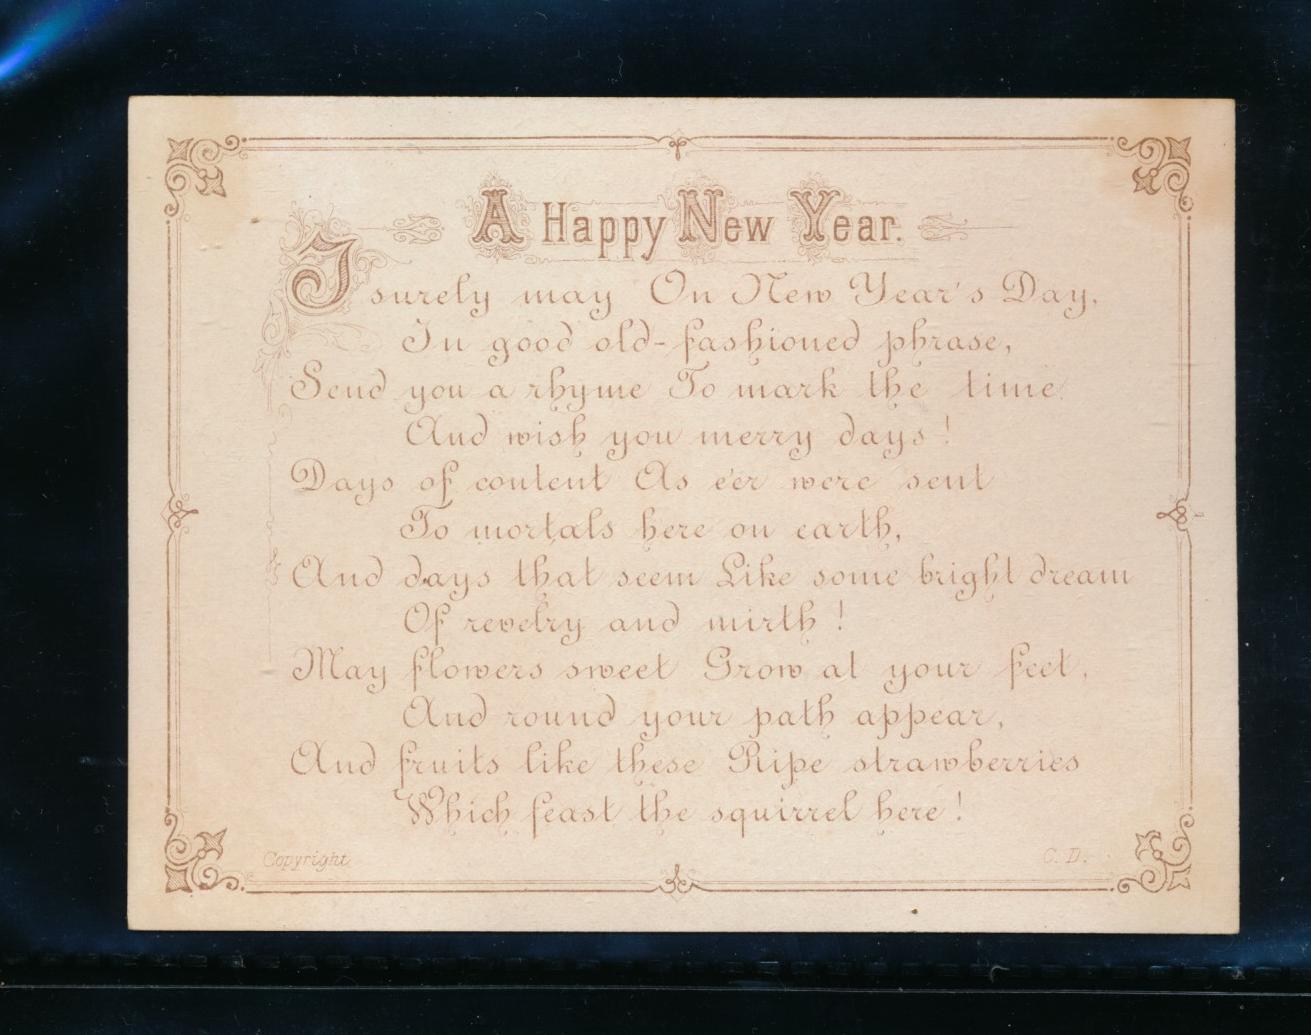 A Happy New Year.
I surely may On New Year's Day,
In good old-fashioned phrase,
Send you a rhyme To mark the time
And wish you merry days!
Days of content As e'er were sent
To mortals here on earth,
And days that seem Like some bright dream
Of revelry and mirth!
May flowers sweet Grow at your feet,
And round your path appear,
And fruits like these Ripe strawberries
Which feast the squirrel here!
Copyright
C. D.